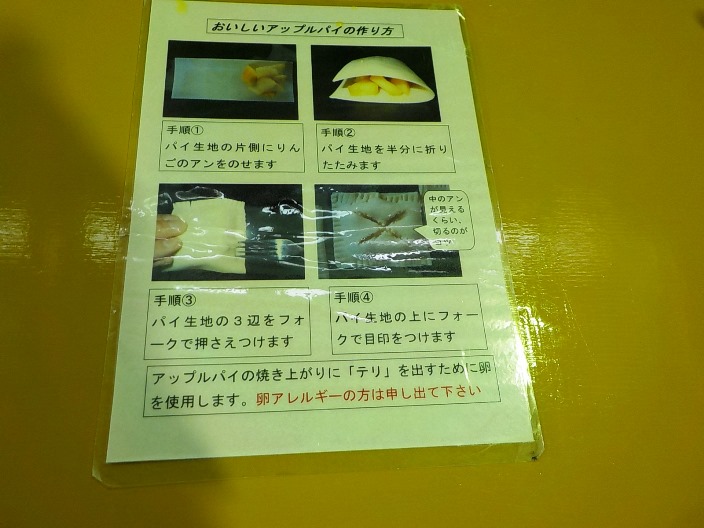 おいしいアップルパイの作り方
手順①
パイ生地の片側にりん
ごのアンをのせます
手順②
パイ生地を半分に折り
たたみます
中のアン
が見える
くらい、
切るのが
コツ
手順③
パイ生地の３辺をフォ
ークで押さえつけます
手順④
パイ生地の上にフォー
クで目印をつけます
アップルパイの焼き上がりに「テリ」を出すために卵
を使用します。卵アレルギーの方は申し出て下さい